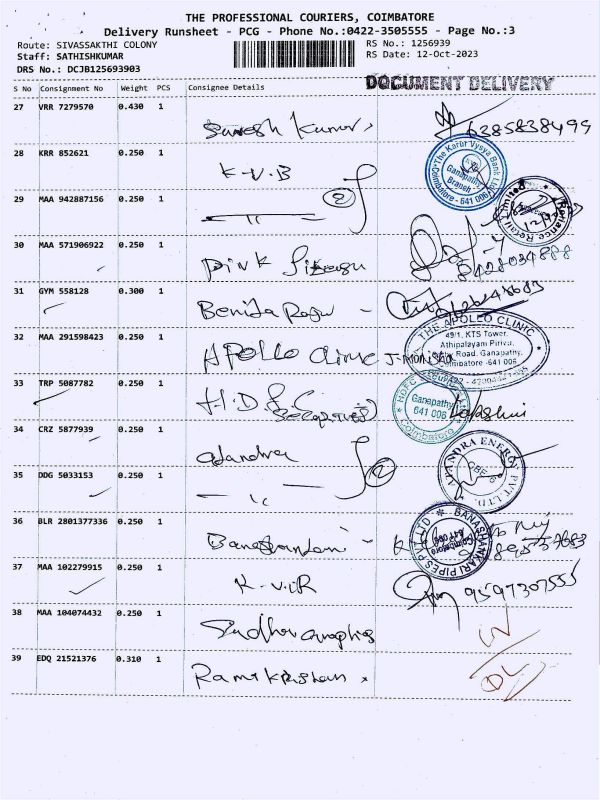 THE PROFESSIONAL COURIERS, COIMBATORE
Delivery Runsheet - PCG - Phone No.:0422-3505555 - Page No.:3
Route: SIVASSAKTHI COLONY
Staff: SATHISHKUMAR
DRS No.: DCJB125693903
RS No.: 1256939
RS Date: 12-Oct-2023
DOCUMENT DELIVERY
S No Consignment No Weight PCS Consignee Details
27 VRR 7279570 0.430 1
Suresh Kumar
28 KRR 852621 0.250 1
K-V-B
The Karur Vysya Bank Ltd
Ganapathy
Branch
Coimbatore - 641 006
29 MAA 942887156 0.250 1
2
Reliance Retail Limited
30 MAA 571906922 0.250 1
31 GYM 558128 0.300 1
32 MAA 291598423 0.250 1
APOLLO Clinic
THE APOLLO CLINIC
49/1, KTS Tower,
Athipalayam Pirivu,
Road, Ganapathy,
Coimbatore -641 006
33 TRP 5087782 0.250 1
H.D.F.C
HDFC
Ganapathy
641 006
Coimbatore
34 CRZ 5877939 0.250 1
2
35 DDG 5033153 0.250 1
ENERGY PVT. LTD.
CBE-6
36 BLR 2801377336 0.250 1
BANASHANKARI PIPES PVT LTD
Coimbatore
641 006
37 MAA 102279915 0.250 1
9597307555
38 MAA 104074432 0.250 1
39 EDQ 21521376 0.310 1
Ramakrishnan
DL